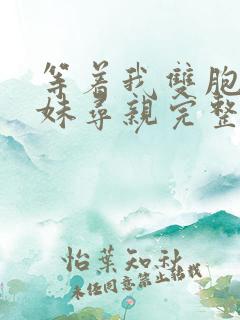 等着我雙胞
妹尋親完整
怡葉知秋
未任同意禁止轉載